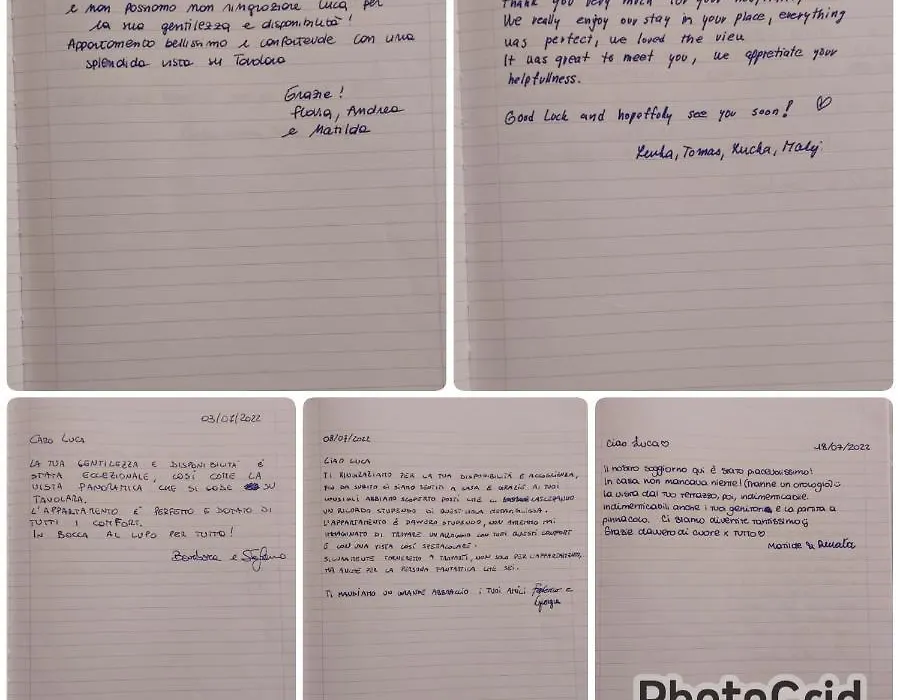 e non possiamo non ringraziare Luca per
la sua gentilezza e disponibilità!
Appartamento bellissimo e confortevole con una
splendida vista su Tavolara
Grazie!
Flavia, Andrea
e Matilda
Thank you very much for your
We really enjoy our stay in your place, everything
was perfect, we loved the view
It was great to meet you, we appretiate your
helpfullness.
Good Luck and hopeffoly see you soon! ♡
Lenka, Tomas, Kucka, Maly
03/07/2022
CARO LUCA
LA TUA GENTILEZZA E DISPONIBILITÀ È
STATA ECCEZIONALE, COSÌ COME LA
VISTA PANORAMICA CHE SI GODE SU
TAVOLARA.
L'APPARTAMENTO È PERFETTO E DOTATO DI
TUTTI I COMFORT.
IN BOCCA AL LUPO PER TUTTO!
Barbara e Stefano
08/07/2022
CIAO LUCA
TI RINGRAZIAMO PER LA TUA DISPONIBILITÀ E ACCOGLIENZA,
FIN DA SUBITO CI SIAMO SENTITI A CASA E GRAZIE AI TUOI
CONSIGLI ABBIAMO SCOPERTO POSTI CHE LASCERANNO
UN RICORDO STUPENDO DI QUEST'ISOLA MERAVIGLIOSA.
L'APPARTAMENTO È DAVVERO STUPENDO, NON AVREMMO MAI
IMMAGINATO DI TROVARE UN ALLOGGIO CON TUTTI QUESTI COMFORT
E CON UNA VISTA COSÌ SPETTACOLARE.
SICURAMENTE TORNEREMO A TROVARTI, NON SOLO PER L'APPARTAMENTO,
MA ANCHE PER LA PERSONA FANTASTICA CHE SEI.
TI MANDIAMO UN GRANDE ABBRACCIO I TUOI AMICI Federico e
Giorgia
Ciao Luca♡
18/07/2022
Il nostro soggiorno qui è stato piacevolissimo!
In casa non mancava niente! (tranne un orologio)
La vista dal tuo terrazzo, poi, indimenticabile.
Indimenticabili anche i tuoi genitori e la partita a
pinnacolo. Ci siamo divertite tantissimo
Grazie davvero di cuore x tutto♡
Matilde & Renata
PhotoGrid